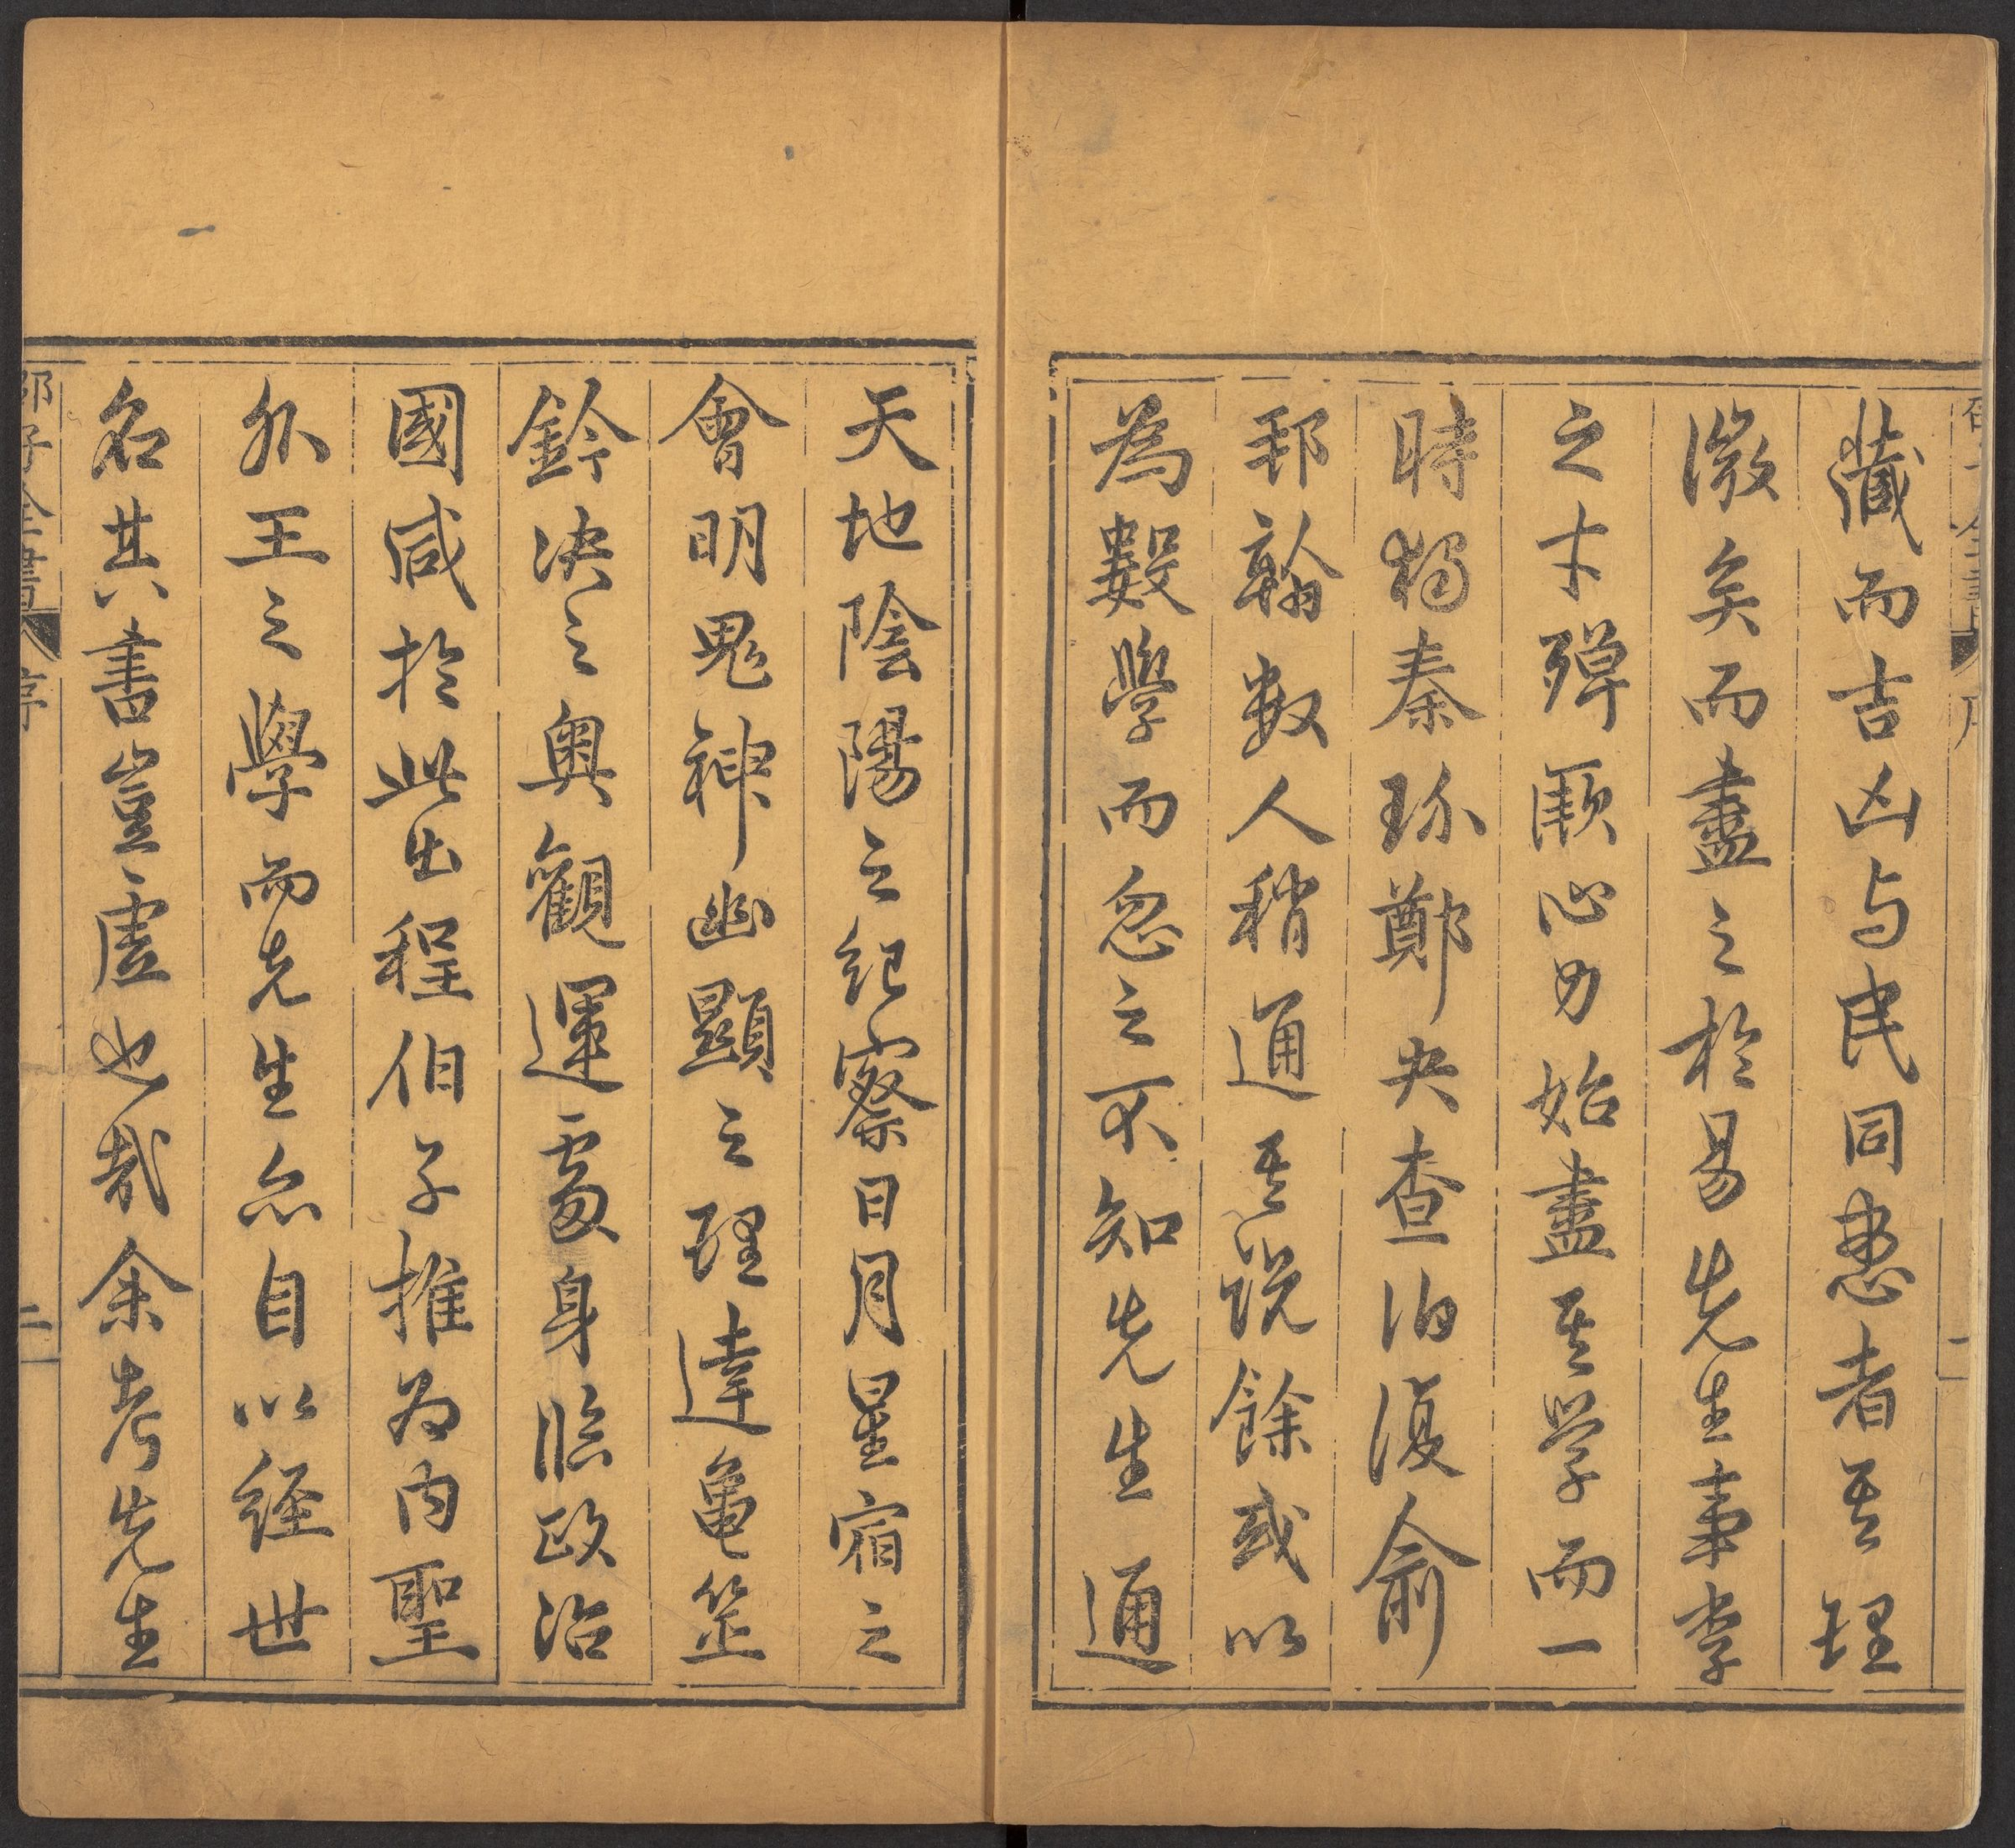 藏而吉凶与民同患者其理
微矣而盡之於易先生事李
之才殫厥心力始盡其学而一
時獨秦玠鄭夬查伯復俞
邽翰数人稍通其説餘或以
為數學而忽之不知先生通
天地陰陽之紀察日月星宿之
會明鬼神幽顯之理達龜筮
鈐决之奥觀運處身臨政治
國咸於此出程伯子推为内聖
外王之學而先生亦自以經世
名其書豈虛也哉余考先生
邵子全書 序 二